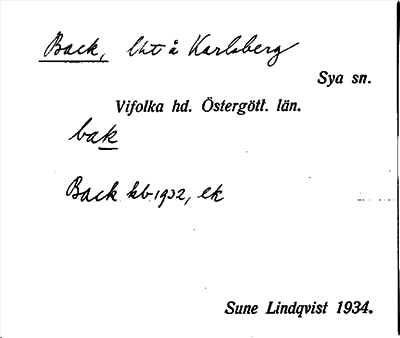 Back, lht å Karlsberg
Sya sn.
Vifolka hd. Östergötl. län.
bak
Back kb 1932, ek
Sune Lindqvist 1934.